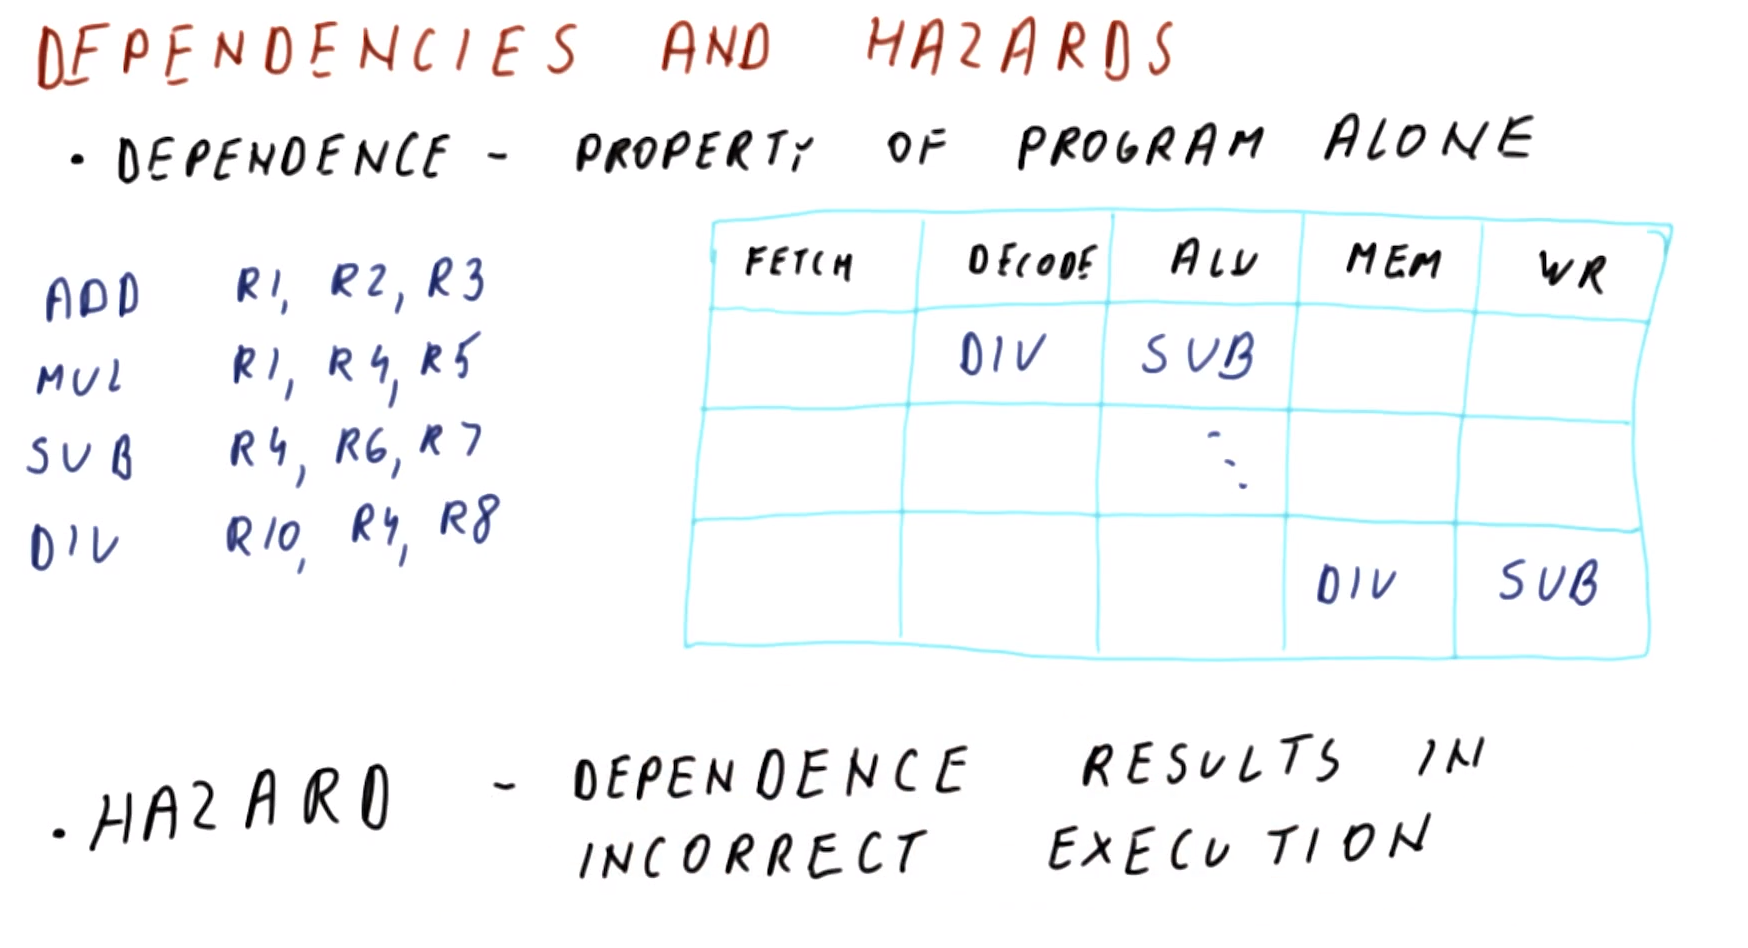 DEPENDENCIES AND HAZARDS
• DEPENDENCE - PROPERTY OF PROGRAM ALONE
ADD R1, R2, R3
MUL R1, R4, R5
SUB R4, R6, R7
DIV R10, R4, R8
FETCH DECODE ALU MEM WR
DIV SUB
DIV SUB
• HAZARD - DEPENDENCE RESULTS IN
INCORRECT EXECUTION